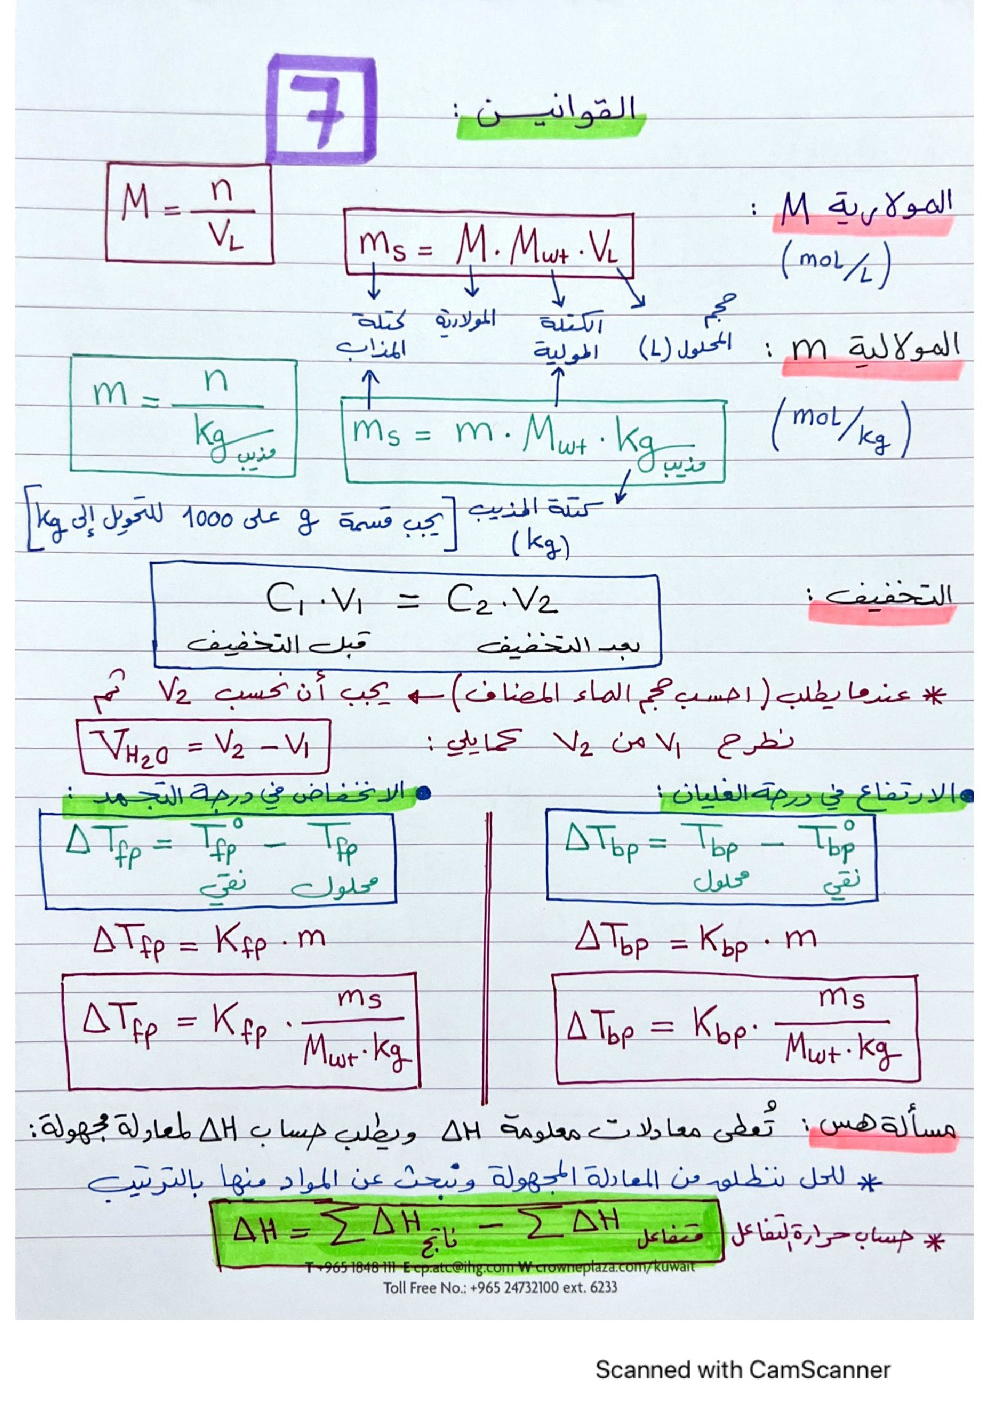 7
القوانين :
المولارية M :
(mol/L)
M = n / VL
ms = M . Mwt . VL
كتلة المذاب
المولارية
الكتلة المولية
حجم المحلول (L)
المولالية m :
(mol/kg)
m = n / kg مذيب
ms = m . Mwt . kg مذيب
كتلة المذيب (kg) [يجب قسمة g على 1000 للتحويل إلى kg]
التخفيف :
C1 . V1 = C2 . V2
قبل التخفيف بعد التخفيف
* عندما يطلب (احسب حجم الماء المضاف) ← يجب أن نحسب V2 ثم
نطرح V1 من V2 كمايلي : VH2O = V2 – V1
• الارتفاع في درجة الغليان :
ΔTbp = Tbp – T°bp
محلول نقي
ΔTbp = Kbp . m
ΔTbp = Kbp . ms / Mwt . kg
• الانخفاض في درجة التجمد :
ΔTfp = T°fp – Tfp
نقي محلول
ΔTfp = Kfp . m
ΔTfp = Kfp . ms / Mwt . kg
مسألة هس : تُعطى معادلات معلومة ΔH ويطلب حساب ΔH لمعادلة مجهولة :
* للحل ننطلق من المعادلة المجهولة ونبحث عن المواد منها بالترتيب
* حساب حرارة التفاعل ΔH = Σ ΔH ناتج – Σ ΔH متفاعل
T +965 1848 111 E cp.atc@ihg.com W crowneplaza.com/kuwait
Toll Free No.: +965 24732100 ext. 6233
Scanned with CamScanner